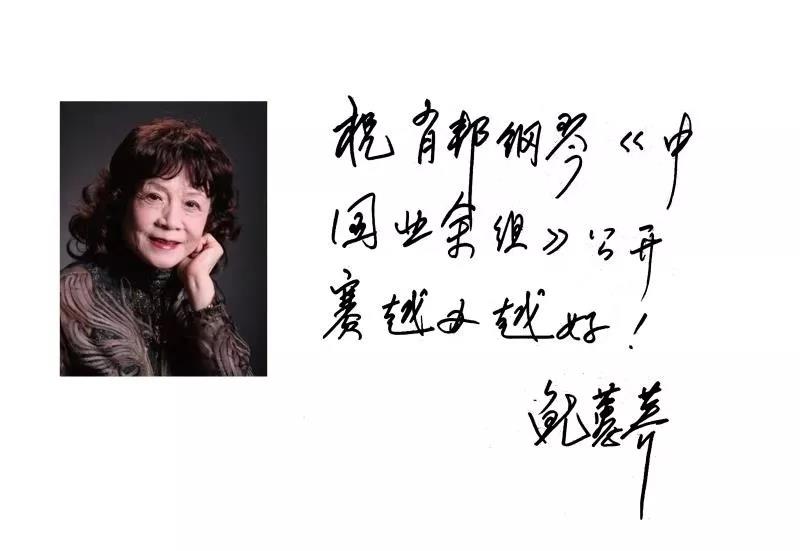 祝肖邦钢琴《中
国业余组》公开
赛越办越好！
鲍蕙荞